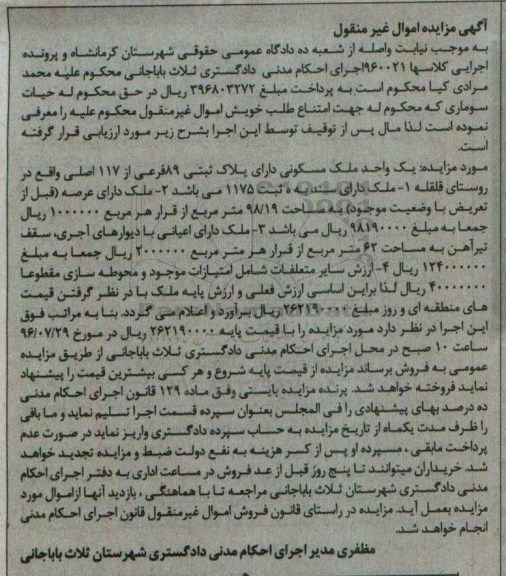 آگهی مزایده اموال غیر منقول
به موجب نیابت واصله از شعبه ده دادگاه عمومی حقوقی شهرستان کرمانشاه و پرونده
اجرایی کلاسها ۹۶۰۰۲۱اجرای احکام مدنی دادگستری ثلاث باباجانی محکوم علیه محمد
مرادی کیا محکوم است به پرداخت مبلغ ۳۹۶۸۰۳۲۷۲ ریال در حق محکوم له حیات
سوماری که محکوم له جهت امتناع طلب خویش اموال غیرمنقول محکوم علیه را معرفی
نموده است لذا مال پس از توقیف توسط این اجرا بشرح زیر مورد ارزیابی قرار گرفته
است.
مورد مزایده: یک واحد ملک مسکونی دارای پلاک ثبتی ۸۹فرعی از ۱۱۷ اصلی واقع در
روستای قلقله ۱- ملک دارای سند به ثبت ۱۱۷۵ می باشد ۲- ملک دارای عرصه (قبل از
تعریض با وضعیت موجود) به مساحت ۹۸/۱۹ متر مربع از قرار هر مربع ۱۰۰۰۰۰۰ ریال
جمعا به مبلغ ۹۸۱۹۰۰۰۰ ریال می باشد ۳- ملک دارای اعیانی با دیوارهای آجری، سقف
تیرآهن به مساحت ۶۲ متر مربع از قرار هر متر مربع ۲۰۰۰۰۰۰ ریال جمعا به مبلغ
۱۲۴۰۰۰۰۰۰ ریال ۴- ارزش سایر متعلقات شامل امتیازات موجود و محوطه سازی مقطوعا
۴۰۰۰۰۰۰۰ ریال لذا براین اساس ارزش فعلی و ارزش پایه ملک با در نظر گرفتن قیمت
های منطقه ای و روز مبلغ ۲۶۲۱۹۰۰۰۰ ریال برآورد و اعلام می گردد. بنا به مراتب فوق
این اجرا در نظر دارد مورد مزایده را با قیمت پایه ۲۶۲۱۹۰۰۰۰ ریال در مورخ ۹۶/۰۷/۲۹
ساعت ۱۰ صبح در محل اجرای احکام مدنی دادگستری ثلاث باباجانی از طریق مزایده
عمومی به فروش برساند مزایده از قیمت پایه شروع و هر کسی بیشترین قیمت را پیشنهاد
نماید فروخته خواهد شد. برنده مزایده بایستی وفق ماده ۱۲۹ قانون اجرای احکام مدنی
ده درصد بهای پیشنهادی را فی المجلس بعنوان سپرده قسمت اجرا تسلیم نماید و ما باقی
را ظرف مدت یکماه از تاریخ مزایده به حساب سپرده دادگستری واریز نماید در صورت عدم
پرداخت مابقی، سپرده او پس از کسر هزینه به نفع دولت ضبط و مزایده تجدید خواهد
شد. خریداران میتوانند تا پنج روز قبل از عد فروش در ساعت اداری به دفتر اجرای احکام
مدنی دادگستری شهرستان ثلاث باباجانی مراجعه تا با هماهنگی، بازدید آنها ازاموال مورد
مزایده بعمل آید. مزایده در راستای قانون فروش اموال غیرمنقول قانون اجرای احکام مدنی
انجام خواهد شد.
مظفری مدیر اجرای احکام مدنی دادگستری شهرستان ثلاث باباجانی